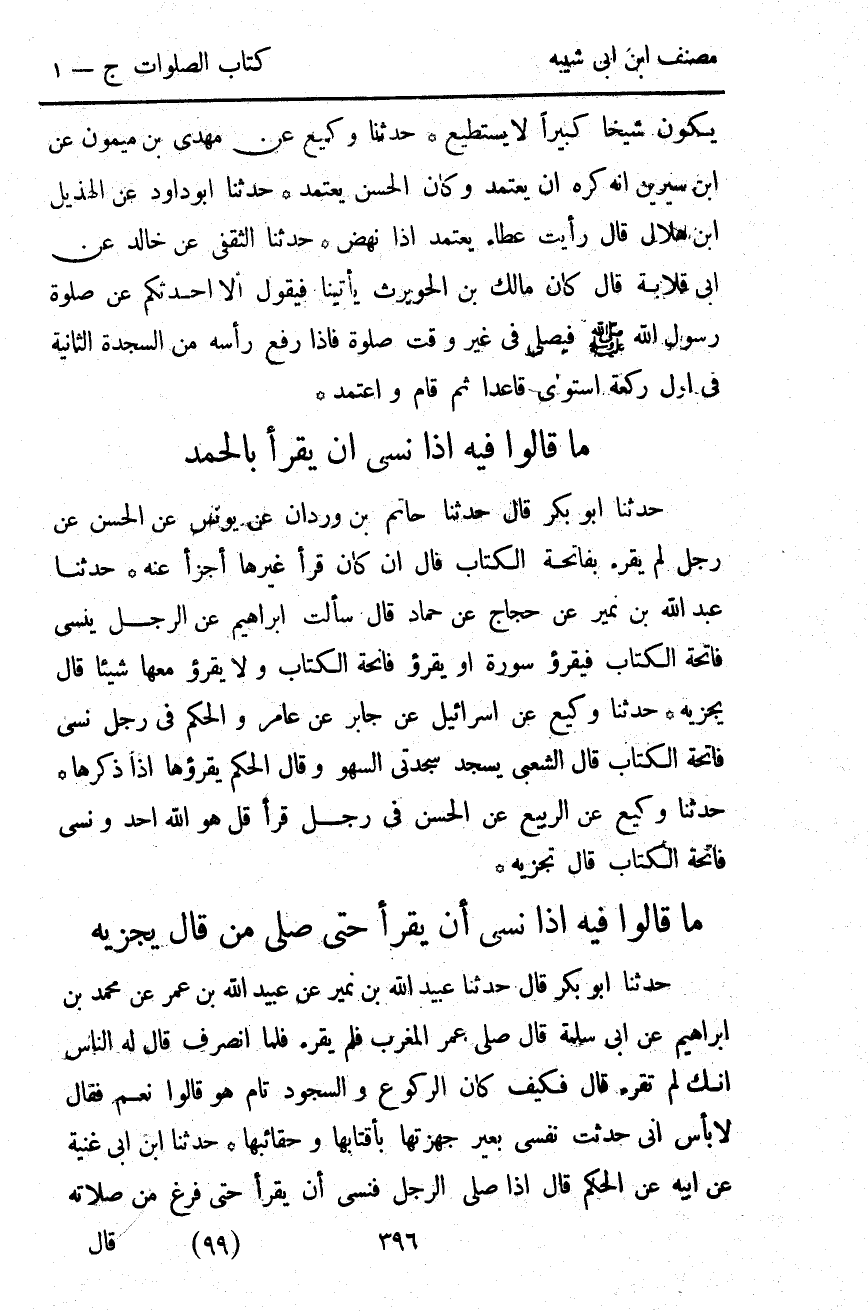 مصنف ابن ابى شيبه
كتاب الصلوات ج – ١
يكون شيخا كبيراً لايستطيع * حدثنا وكيع عن مهدى بن ميمون عن
ابن سيرين انه كره ان يعتمد وكان الحسن يعتمد * حدثنا ابوداود عن الهذيل
ابن هلالى قال رأيت عطاء يعتمد اذا نهض * حدثنا الثقفى عن خالد عن
ابى قلابة قال كان مالك بن الحويرث يأتينا فيقول ألا احدثكم عن صلوة
رسول الله ﷺ فيصلى فى غير وقت صلوة فاذا رفع رأسه من السجدة الثانية
فى اول ركعة استوى قاعدا ثم قام و اعتمد *
ما قالوا فيه اذا نسى ان يقرأ بالحمد
حدثنا ابو بكر قال حدثنا حاتم بن وردان عن يونس عن الحسن عن
رجل لم يقرء بفاتحة الكتاب قال ان كان قرأ غيرها أجزأ عنه * حدثنا
عبد الله بن نمير عن حجاج عن حماد قال سألت ابراهيم عن الرجل ينسى
فاتحة الكتاب فيقرؤ سورة او يقرؤ فاتحة الكتاب و لا يقرؤ معها شيئا قال
يجزيه * حدثنا وكيع عن اسرائيل عن جابر عن عامر و الحكم فى رجل نسى
فاتحة الكتاب قال الشعبى يسجد سجدتى السهو وقال الحكم يقرؤها اذا ذكرها *
حدثنا وكيع عن الربيع عن الحسن فى رجل قرأ قل هو الله احد و نسى
فاتحة الكتاب قال تجزيه *
ما قالوا فيه اذا نسى أن يقرأ حتى صلى من قال يجزيه
حدثنا ابو بكر قال حدثنا عبيد الله بن نمير عن عبيد الله بن عمر عن محمد بن
ابراهيم عن ابى سلمة قال صلى عمر المغرب فلم يقرء فلما انصرف قال له الناس
انك لم تقرء قال فكيف كان الركوع و السجود تام هو قالوا نعم فقال
لابأس انى حدثت نفسى بعير جهزتها بأقتابها و حقائبها * حدثنا ابن ابى غنية
عن ابيه عن الحكم قال اذا صلى الرجل فنسى أن يقرأ حتى فرغ من صلاته
٣٩٦
(٩٩)
قال